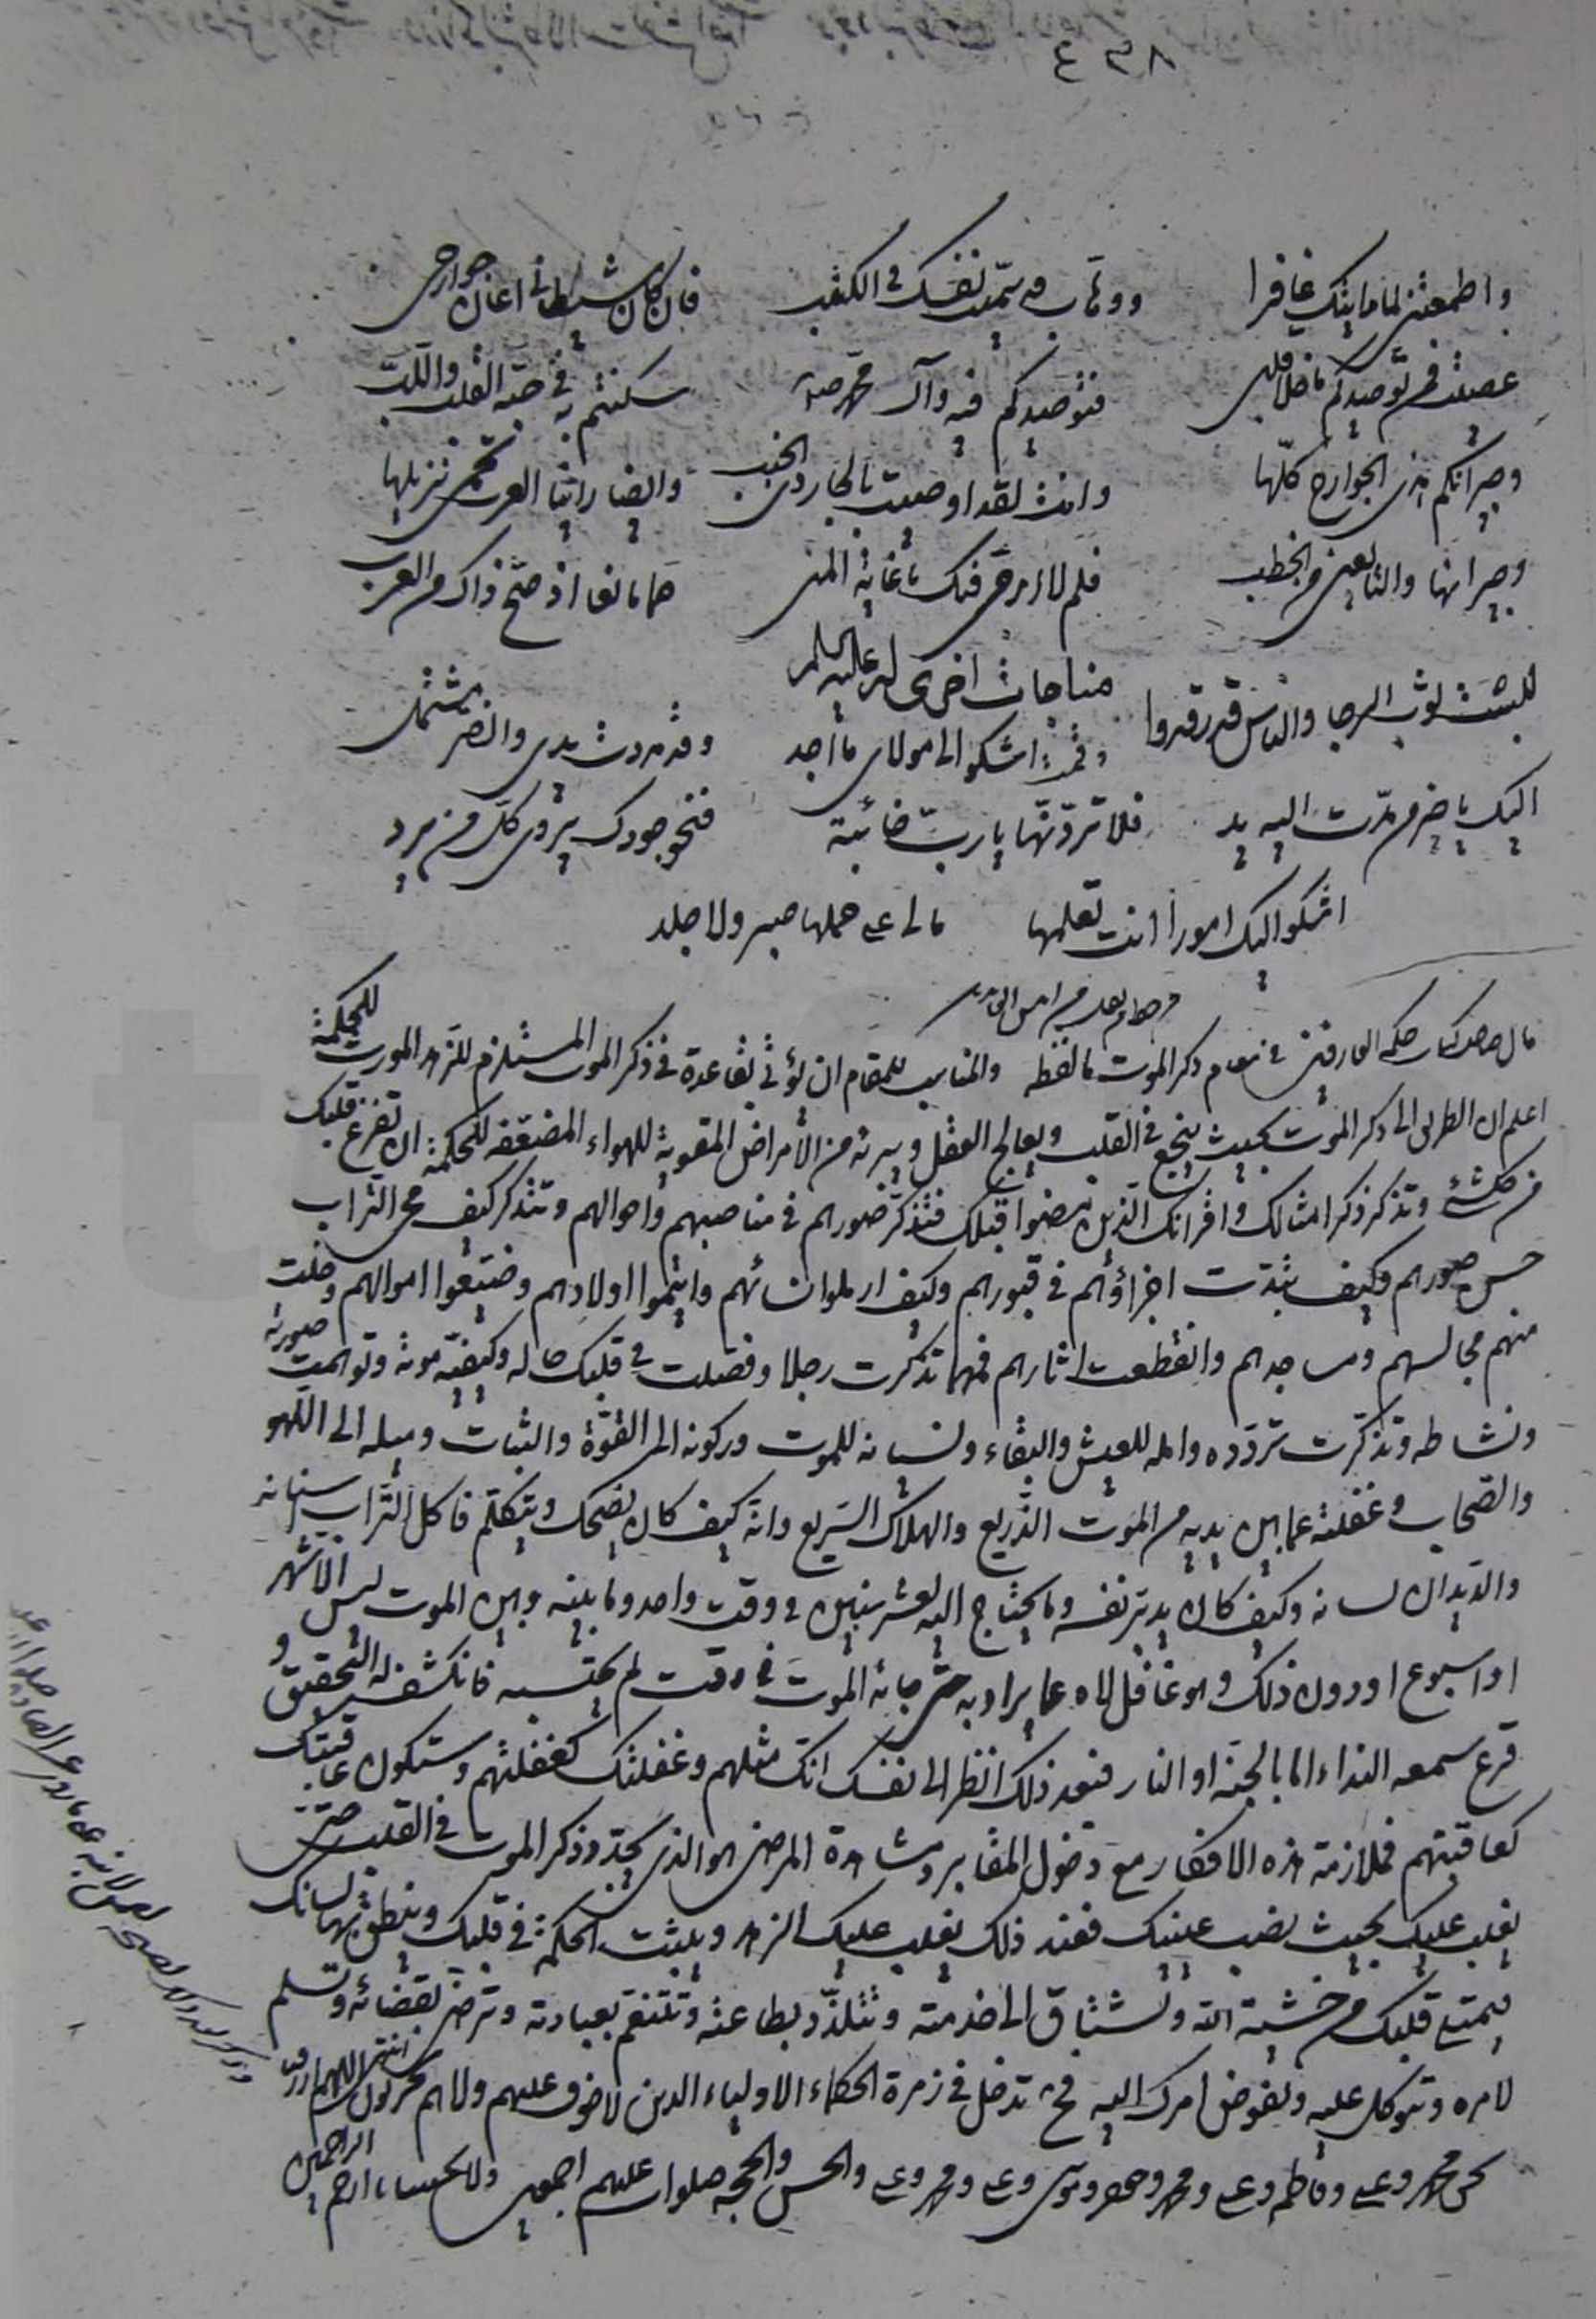 ٨٣٤
واطمعتنى لما رايتك غافرا ووهاب قد سميت نفسك فى الكتب فان كان شيطانى اعان جوارحى
عصتكم فمن توحيدكم ما خلا قلبى فتوحيدكم فيه وآل محمد سكنتم به فى حبة القلب واللب
وجيرانكم هذى الجوارح كلها وانت لقد اوصيت بالجار ذى الجنب وايضا راينا العرب تحمى نزيلها
وجيرانها والتابعين من الخطب فلم لا ارجى فيك يا غاية المنى حما مانعا اذ صح ذاك من العرب
مناجات اخرى له عليه السلام
لبست ثوب الرجا والناس قد رقدوا وقمت اشكو الى مولاى ما اجد وقد مددت يدى والضر مشتمل
اليك يا خير من مدت اليه يد فلا تردنها يا رب خائبة فبحر جودك يروى كل من يرد
اشكو اليك امورا انت تعلمها مالى على حملها صبر ولا جلد
قال صاحب كتاب حكم العارفين فى مقام ذكر الموت ما لفظه والمناسب للمقام ان نؤتى بقاعدة فى ذكر الموت المستلزم للزهد المورث للحكمة
اعلم ان الطريق الى ذكر الموت بحيث ينجع فى القلب ويعالج العقل ويبرئه من الأمراض المقوية للهواء المضعفه للحكمة ان تفرغ قلبك
من كل شئ وتذكر ذكر امثالك واقرانك الذين مضوا قبلك فتذكر صورهم فى مناصبهم واحوالهم وتتذكر كيف محى التراب
حسن صورهم وكيف تبددت اجزاؤهم فى قبورهم وكيف ارملوا نسائهم وايتموا اولادهم وضيعوا اموالهم وخلت
منهم مجالسهم ومساجدهم وانقطعت اثارهم فمهما تذكرت رجلا وفصلت فى قلبك حاله وكيفية موته وتوهمت صورته
ونشاطه وتذكرت تردده وامله للعيش والبقاء ونسيانه للموت وركونه الى القوة والثبات وميله الى اللهو
والضحاب وغفلته عما بين يديه من الموت الذريع والهلاك السريع وانه كيف كان يضحك ويتكلم فاكل التراب اسنانه
والديدان لسانه وكيف كان يدبر نفسه وما يحتاج اليه لعشر سنين فى وقت واحد وما بينه وبين الموت ليس الا شهر
او اسبوع او دون ذلك وهو غافل لاه عما يراد به حتى جائه الموت فى وقت لم يحتسبه فانكشف له التحقيق و
قرع سمعه النداء اما بالجنة او النار فبعد ذلك انظر الى نفسك انك مثلهم وغفلتك كغفلتهم وستكون عاقبتك
كعاقبتهم فملازمة هذه الافكار مع دخول المقابر ومشاهدة المرضى هو الذى يجدد ذكر الموت فى القلب حتى
يغلب عليك بحيث نصب عينيك فعند ذلك يغلب عليك الزهد ويثبت الحكمة فى قلبك وينطق بها لسانك
ويمتلى قلبك من خشية الله وتشتاق الى خدمته وتتلذذ بطاعته وتتنعم بعبادته وترضى بقضائه وتسلم
لامره وتتوكل عليه وتفوض امرك اليه فح تدخل فى زمرة الحكماء الاولياء الذين لا خوف عليهم ولا هم يحزنون انتهى اللهم ارزقنا
بحق محمد وعلى وفاطمه وعلى ومحمد وجعفر وموسى وعلى ومحمد وعلى والحسن والحجه صلوات عليهم اجمعين يا ارحم الراحمين